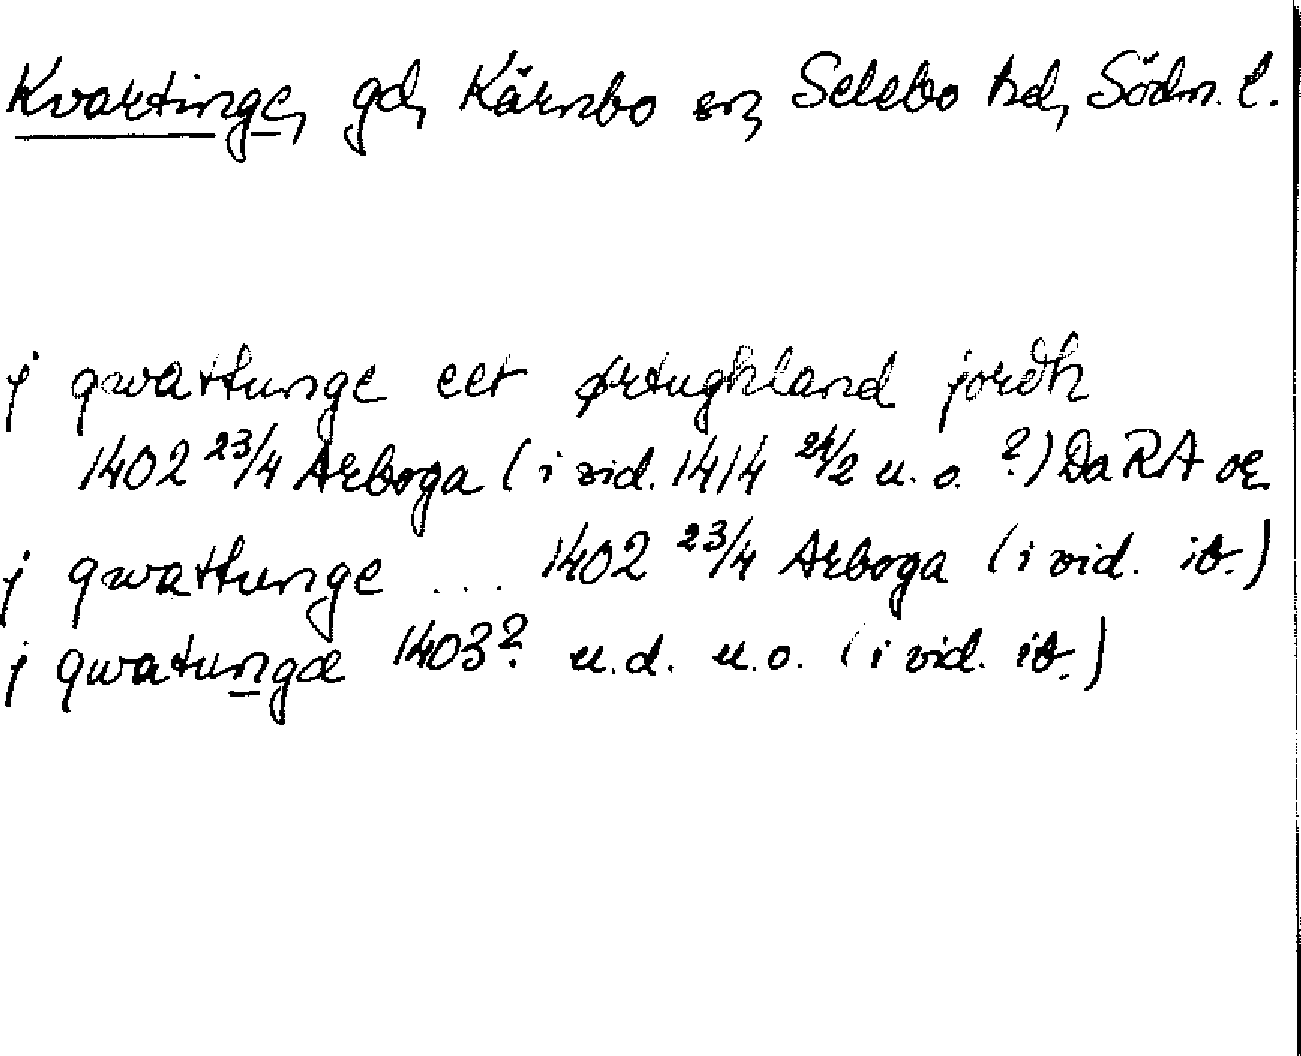 Kvartinge, gd, Kärnbo sn, Selebo hd, Södm. l.
j qwattunge eet ørtughland jordh
1402 23/4 Arboga (i vid. 1414 24/2 u. o. ?) Da RA or
j qwattunge ... 1402 23/4 Arboga (i vid. ib.)
j qwatungæ 1403? u.d. u.o. (i vid. ib.)